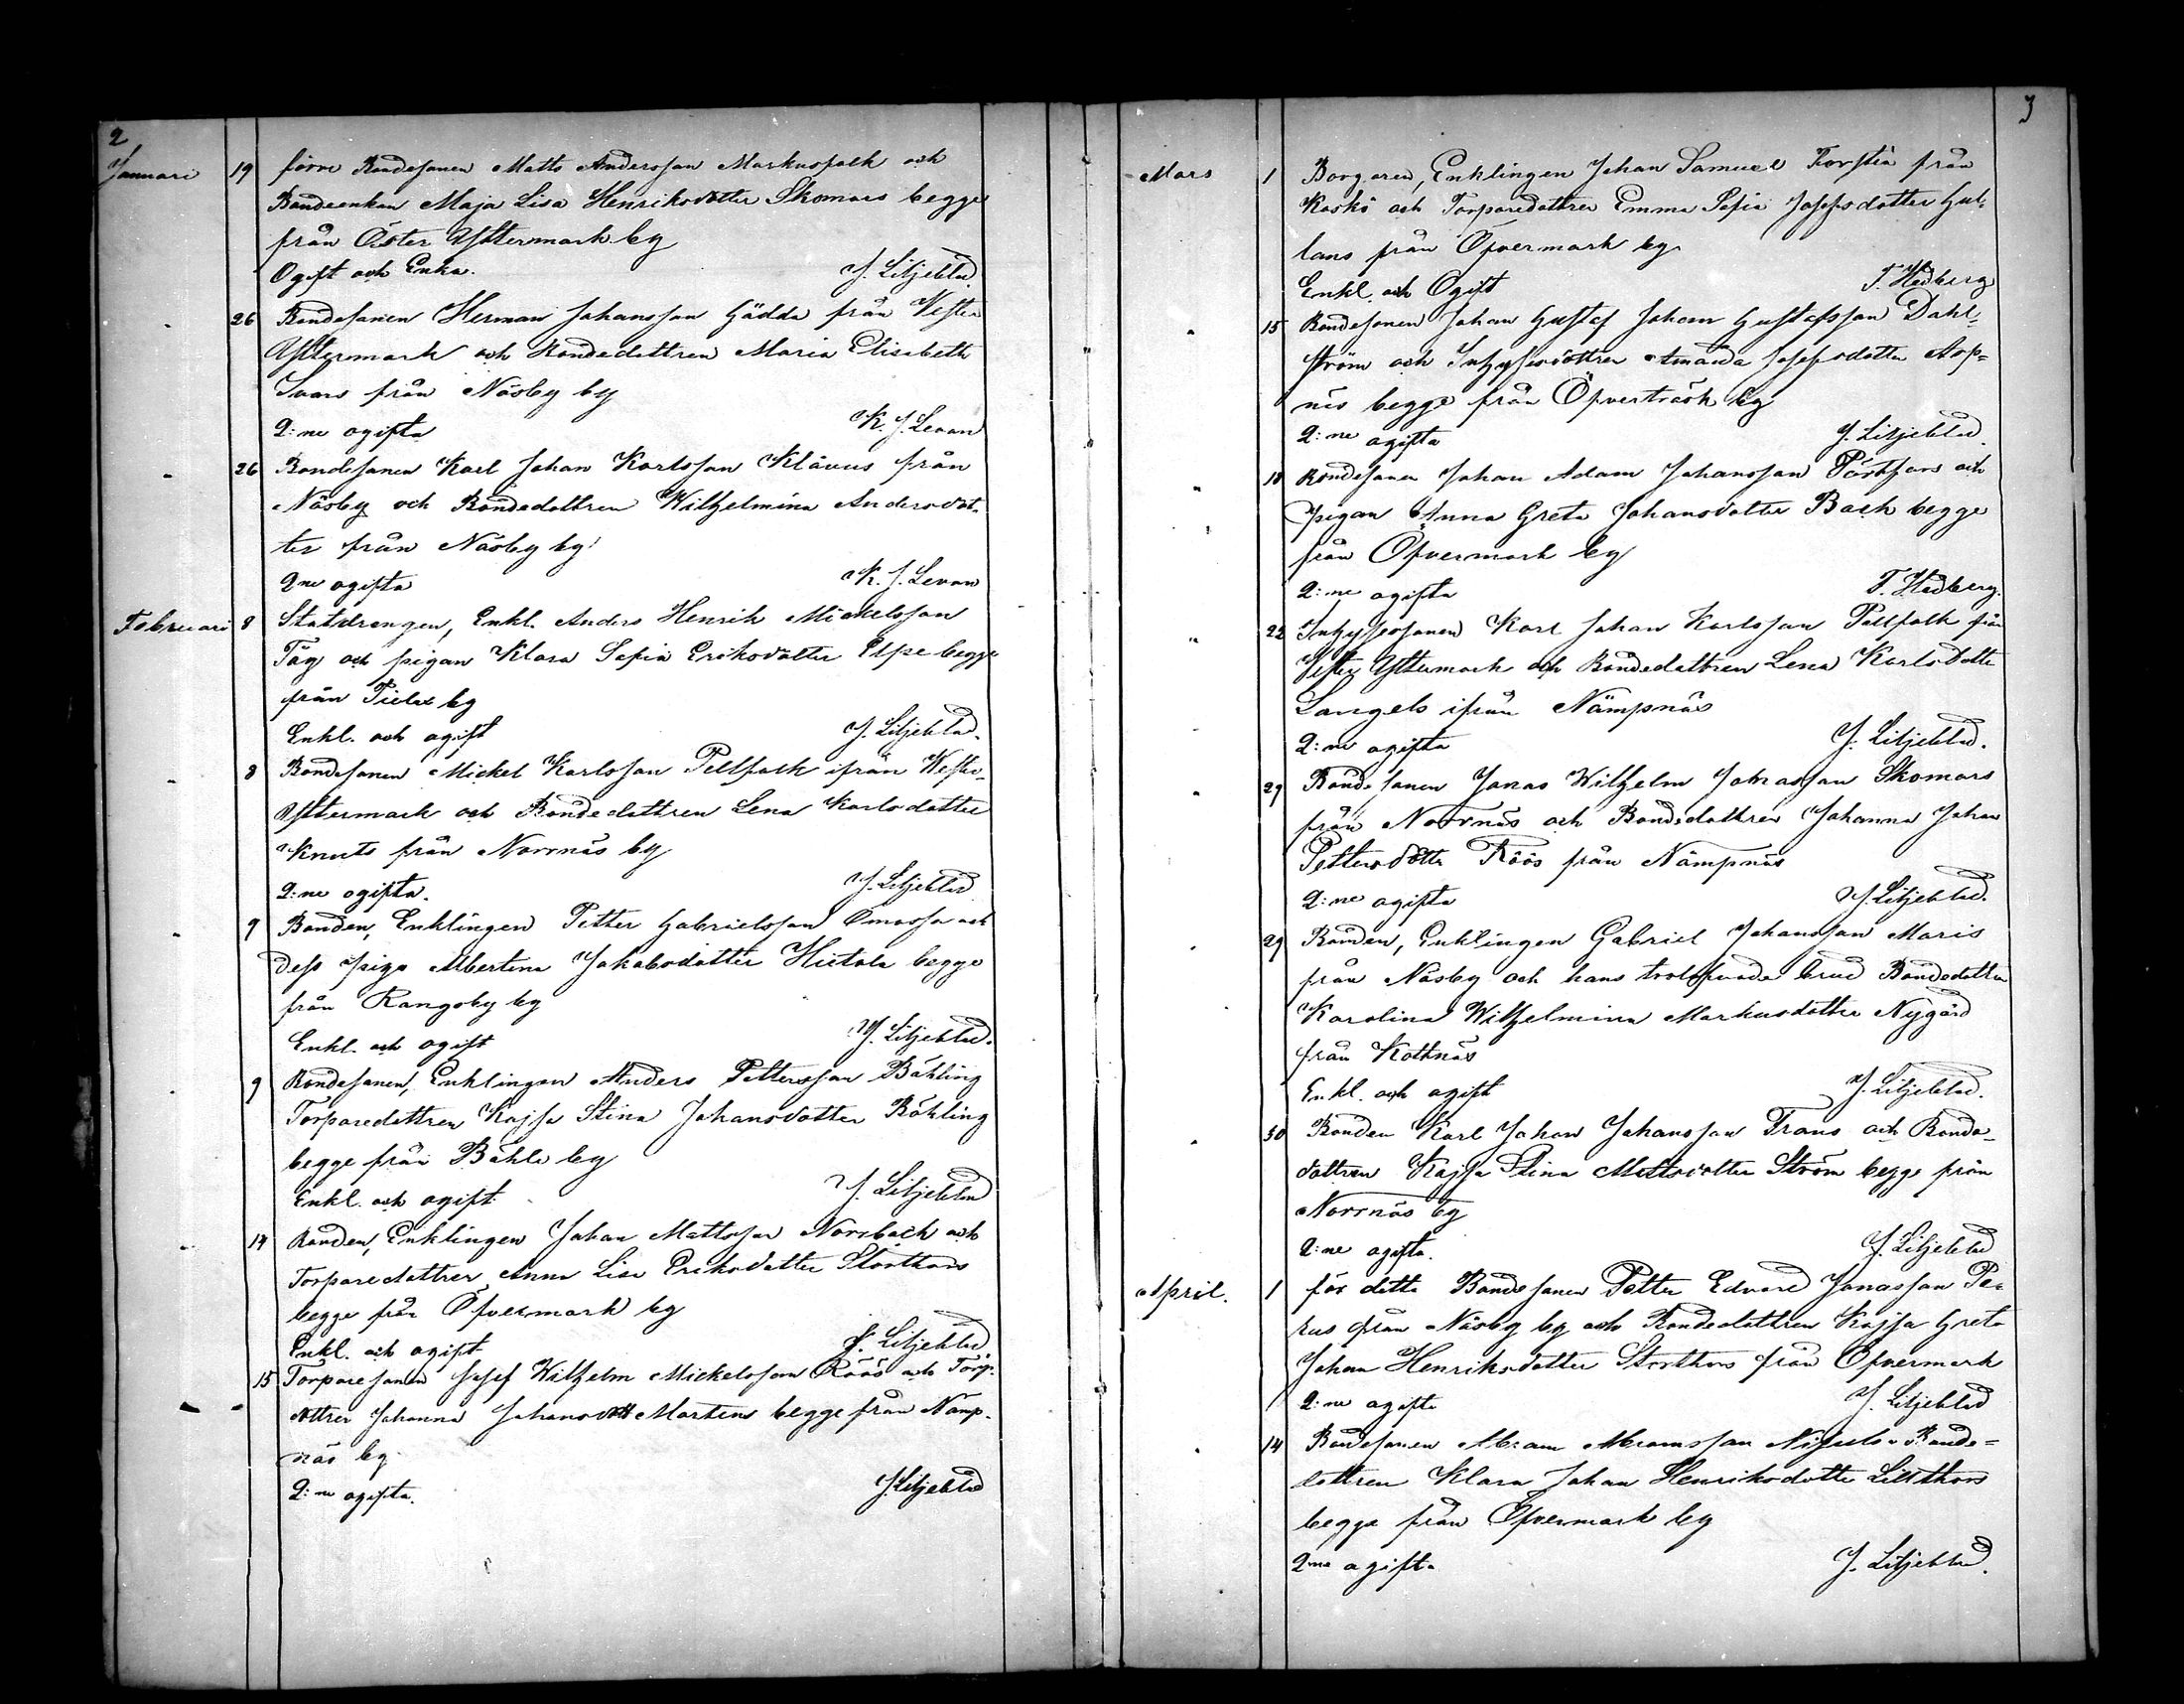 2
Januari 19 förre Bondesonen Matts Andersson Markusfolk och
Bondeenkan Maja Lisa Henriksdotter Skomars begge
från Öster Yttermark by
Ogift och Enka. J. Liljeblad
26 Bondesonen Herman Johansson Gädda från Vester
Yttermark och Bondedottren Maria Elisabeth
Ivars från Näsby by
2:ne ogifta K. J. Levan
26 Bondesonen Karl Johan Karlsson Klåvus från
Näsby och Bondedottren Wilhelmina Andersdot-
ter från Näsby by
2ne ogifta K. J. Levan
Februari 8 Statdrengen, Enkl. Anders Henrik Mickelsson
Täg och pigan Klara Sofia Eriksdotter Elpe begge
från Pielax by
Enkl. och ogift J. Liljeblad.
8 Bondesonen Mickel Karlsson Pellfolk ifrån Vester
Yttermark och Bondedottren Lena Karlsdotter
Knuts från Norrnäs by
2:ne ogifta. J. Liljeblad
9 Bonden, Enklingen Petter Gabrielsson Omossa och
dess piga Albertina Jakobsdotter Hietala begge
från Rangsby by
Enkl. och ogift J. Liljeblad.
9 Bondesonen, Enklingen Anders Pettersson Båhling
Torparedottren Kajsa Stina Johansdotter Båhling
begge från Båhle by
Enkl. och ogift J. Liljeblad
14 Bonden, Enklingen Johan Mattsson Norrback och
Torparedottren Anna Lisa Eriksdotter Storthors
begge från Öfvermark by
Enkl. och ogift J. Liljeblad
15 Torparesonen Josef Wilhelm Mickelsson Röös och Torp-
dottren Johanna Johansdott Mårtens begge från Nämp-
näs by
2:ne ogifta. J. Liljeblad
3
Mars 1 Borgaren, Enklingen Johan Samuel Forstén från
Kaskö och Torparedottren Emma Sofia Josefsdotter Gul-
lans från Öfvermark by
Enkl. och Ogift T. Hedberg
15 Bondesonen Johan Gustaf Johan Gustafsson Dahl-
ström och Inhysesdottren Amanda Josefsdotter Asp-
näs begge från Öfverträsk by
2:ne ogifta J. Liljeblad.
18 Bondesonen Johan Adam Johansson Pörtfors och
pigan Anna Greta Johansdotter Back begge
från Öfvermark by
2:ne ogifta T. Hedberg.
22 Inhysessonen Karl Johan Karlsson Pellfolk från
Vester Yttermark och Bondedottren Lena Karlsdotter
Langels ifrån Nämpnäs
2:ne ogifta J. Liljeblad.
29 Bondesonen Jonas Wilhelm Jonasson Skomars
från Norrnäs och Bondedottren Johanna Johan
Pettersdotter Röös från Nämpnäs
2:ne ogifta J. Liljeblad.
29 Bonden, Enklingen Gabriel Johansson Maris
från Näsby och hans trolofvade brud Bondedottren
Karolina Wilhelmina Markusdotter Nygård
från Kottnäs
Enkl. och ogift J. Liljeblad.
30 Bonden Karl Johan Johansson Frans och Bonde-
dottren Kajsa Stina Mattsdotter Ström begge från
Norrnäs by
2:ne ogifta. J. Liljeblad
April. 1 för detta Bondesonen Petter Edvard Jonasson Pe-
rus från Näsby by och Bondedottren Kajsa Greta
Johan Henriksdotter Storthors från Öfvermark
2:ne ogifta J. Liljeblad
14 Bondesonen Abram Abramsson Nissuls Bonde-
dottren Klara Johan Henriksdotter Lillthors
begge från Öfvermark by
2ne ogifta J. Liljeblad.